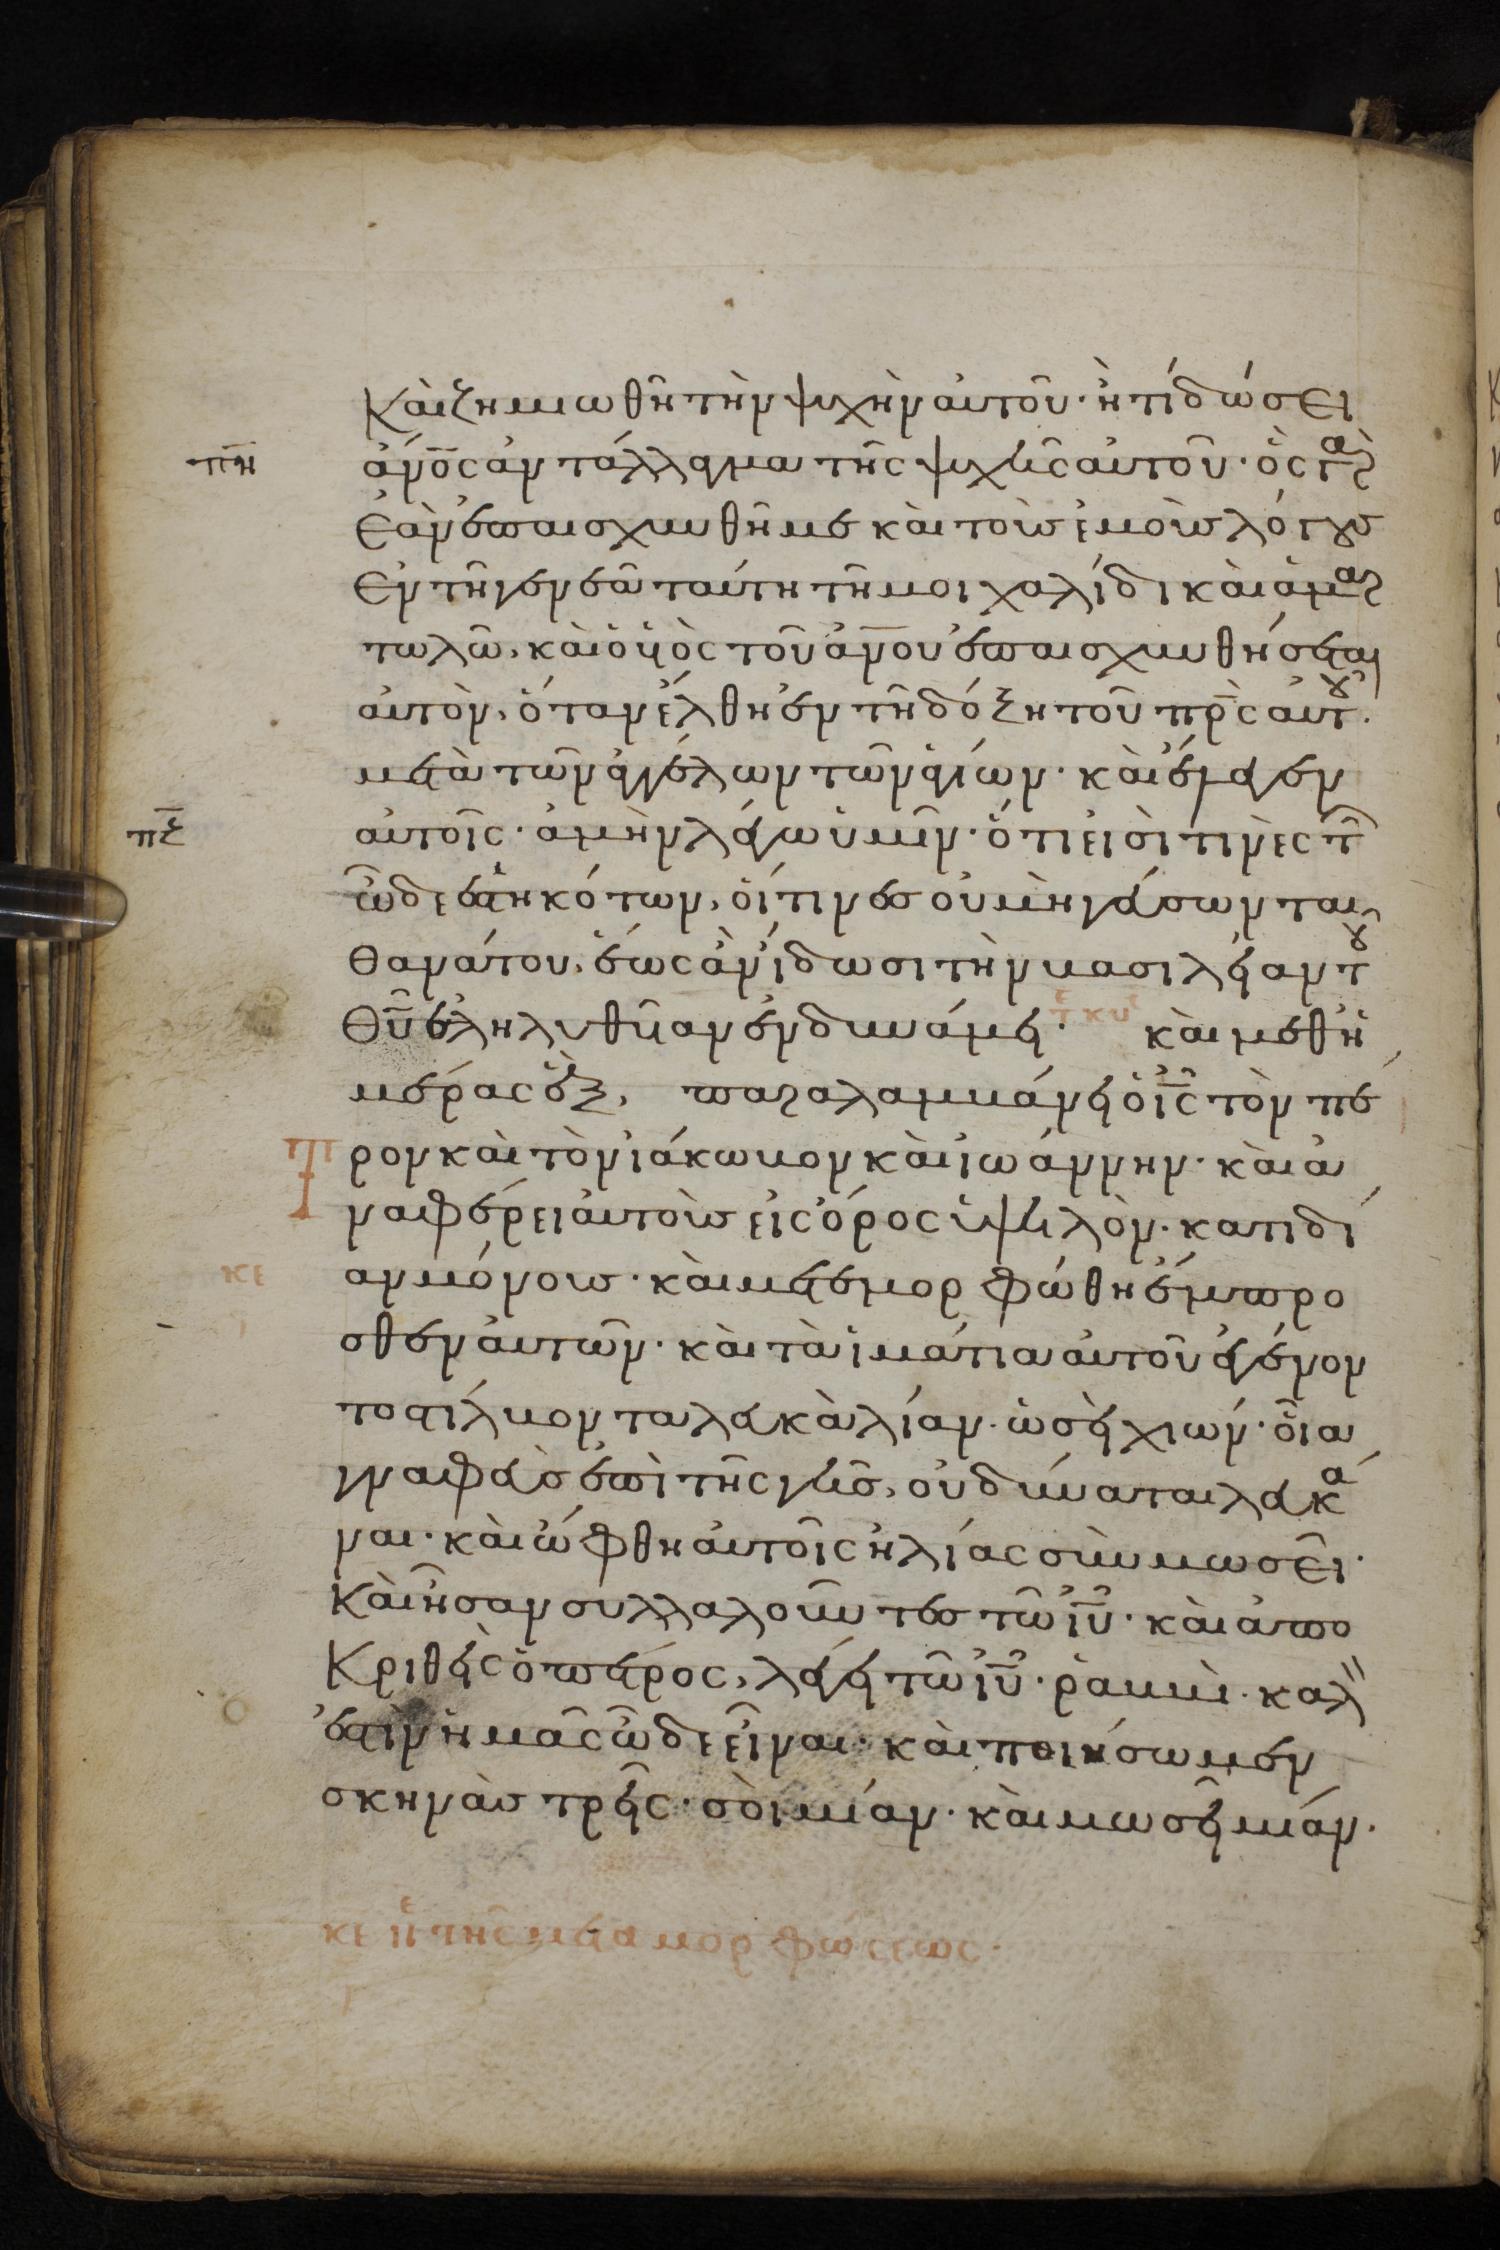 Καὶ ζημιωθῆ τὴν ψυχὴν αὐτοῦ· ἢ τί δώσει
πη
ἄνος ἀντάλλαγμα τῆς ψυχῆς αὐτοῦ· ὃς γὰρ
ἐὰν ἐπαισχυνθῆ με καὶ τοὺς ἐμοὺς λόγους
Ἐν τῆ γενεᾶ ταύτη τῆ μοιχαλίδι καὶ ἁμαρ
τωλῶ, καὶ ὁ υἱὸς τοῦ ἀνου ἐπαισχυνθήσεται
αὐτὸν, ὅταν ἔλθη ἐν τῆ δόξη τοῦ πρς αὐτοῦ.
μετὰ τῶν ἀγγέλων τῶν ἁγίων· καὶ ἔλεγεν
πξ
αὐτοῖς· ἀμὴν λέγω ὑμῖν· ὅτι εἰσὶ τινὲς τῶν
ὧδε ἑστηκότων, οἵτινες οὐ μὴ γεύσωνται
θανάτου, ἕως ἂν ἴδωσι τὴν βασιλείαν τοῦ
Θῦ ἐληλυθυῖαν ἐν δυνάμει· καὶ μεθ' ἡ
μέρας ἓξ, παραλαμβάνει ὁ ις τὸν πέ
τρον καὶ τὸν ἰάκωβον καὶ ἰωάννην· καὶ ἀ
ναφέρει αὐτοὺς εἰς ὄρος ὑψηλὸν· κατιδί
κε
αν μόνους· καὶ μετεμορφώθη ἔμπρο
σθεν αὐτῶν· καὶ τὰ ἱμάτια αὐτοῦ ἐγένον
το στίλβοντα λευκὰ λίαν· ὡσεὶ χιών· οἷα
γναφεὺς ἐπὶ τῆς γῆς, οὐ δύναται λευκᾶ
ναι· καὶ ὤφθη αὐτοῖς ἠλίας σὺν μωσεῖ·
Καὶ ἦσαν συλλαλοῦντες τῶ ιῦ· καὶ ἀπο
Κριθεὶς ὁ πέτρος, λέγει τῶ ιῦ· ῥαββὶ· καλ
ἐστὶν ἡμᾶς ὧδε εἶναι· καὶ ποιήσωμεν
σκηνὰς τρεῖς· σοὶ μίαν· καὶ μωσεῖ μίαν·
κε τῆς μεταμορφώσεως·